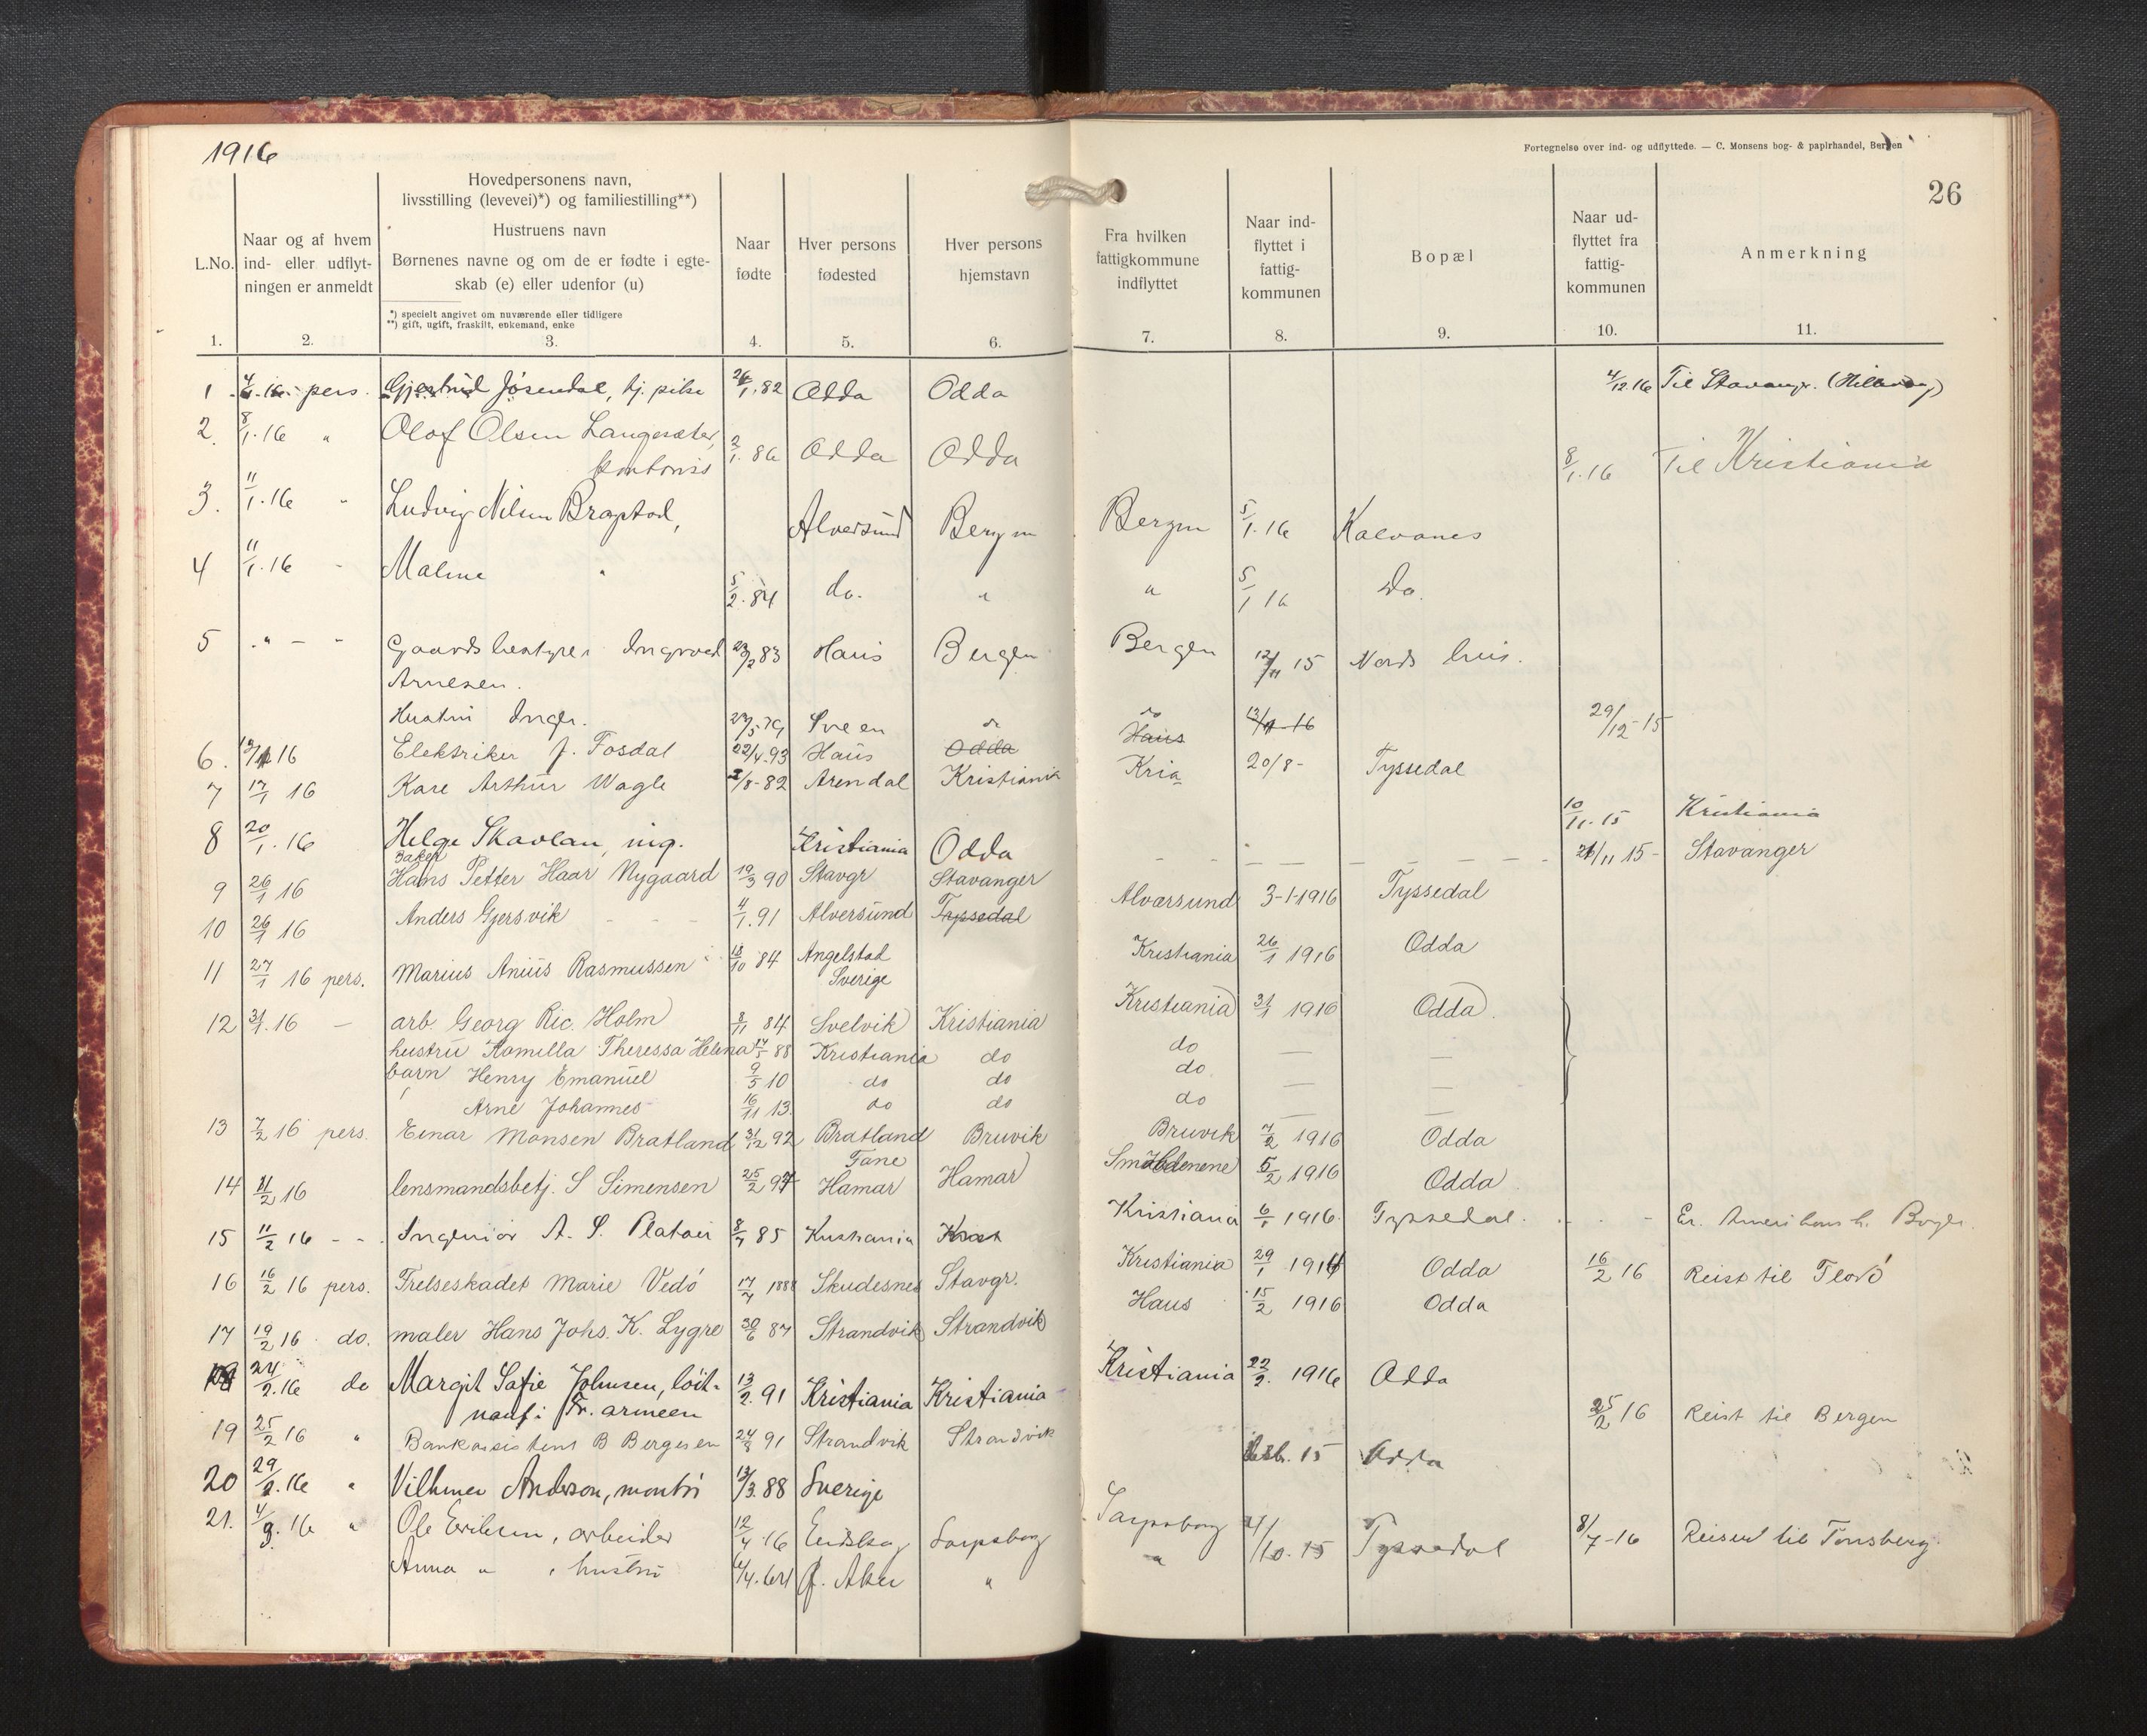 1916
Fortegnelse over ind- og udflyttede. — C. Monsens bog- & papirhandel, Bergen
26
L.No.
Naar og af hvem ind- eller udflyt-ningen er anmeldt
Hovedpersonens navn,
livsstilling (levevei)*) og familiestilling**)
Hustruens navn
Børnenes navne og om de er fødte i egte-
skab (e) eller udenfor (u)
*) specielt angivet om nuværende eller tidligere
**) gift, ugift, fraskilt, enkemand, enke
Naar fødte
Hver persons fødested
Hver persons hjemstavn
Fra hvilken fattigkommune indflyttet
Naar ind-flyttet i fattig-kommunen
Bopæl
Naar ud-flyttet fra fattig-kommunen
Anmerkning
1. 2. 3. 4. 5. 6. 7. 8. 9. 10. 11.
1 pers. Jøsendal, tj. pike 26/1.82 Odda Odda 4/12.16 Til Stavanger
2. 8/1.16 " Olof Olsen Langesæter, 2/1.86 Odda Odda 8/1.16 Til Kristiania
kontoris
3. 11/1.16 " Ludvig Nilsen Alversund Bergen Bergen 5/1.16 Kalvanes
4 11/1.16 - Malene " 5/2.84 do. " " 5/1 16 Do.
5 " - " Gaardsbestyrer Ingvard 23/2 83 Haus Bergen Bergen 12/11 15 Nords hus.
Arnesen.
Hustru Inga. 27/5.79 Sveen do do 29/12-15
6. 16 Elektriker J. Fosdal 22/4.93 Haus Odda Haus 16
7 17/1 16 Kare Arthur Wagle 2/8-82 Arendal Kristiania Kria 20/8- Tyssedal
8 20/1.16 Helge Skavlan, ing. Kristiania Odda 10/11.15 Kristiania
Baker
9 26/1 16 Hans Petter Haar Nygaard 19/3 90 Stavgr Stavanger 26/11 15- Stavanger
10 26/1 16 Anders Gjersvik 4/1.91 Alversund Tyssedal Alversund 3-1-1916 Tyssedal
11 27/1 16 pers. Marius Anius Rasmussen 18/10 84 Angelstad Sverige Kristiania 26/1 1916 Odda
12 31/1.16 - arb. Georg Ric. Holm 8/11 84 Svelvik Kristiania Kristiania 31/1 1916 Odda.
hustru Kamilla Theressa Helena 17/5 88 Kristiania do do — —
barn Henry Emanuel 9/5 10 do do do — —
Arne Johannes 16/11 13. do do do — —
13 7/2 16 pers. Einar Monsen Bratland 31/12 92 Bratland Bruvik Bruvik 7/2 1916 Odda
14 11/2 16 lensmandsbetj. S Simensen 25/2 97 Tane Hamar Hamar Smaalenene 5/2 1916 Odda
15 11/2 16 - - Ingeniør A. S. Platou 8/7 85 Kristiania Krist Kristiania 6/1 1916 Tyssedal. - - - Er. Amerikansk Borger.
16 16/2 16 pers. Frelseskadet Marie Vedø 17/7 1888 Skudesnes Stavgr. Kristiania 29/1 1914 Odda 16/2 16 Reist til Florø
17 19/2 16 do. maler Hans Johs. K. Lygre 30/6 87 Strandvik Strandvik Haus 15/2 1916 Odda
18 24/2.16 do Margit Sofie Johnsen, löit- 13/2.91 Kristiania Kristiania Kristiania 22/2. 1916 Odda
nant i Fr. armeen
19 25/2 16 " Bankassistent B Bergesen 24/8 91 Strandvik Strandvik 25/2 16 Reist til Bergen
20 29/2.16 " Vilhmer Anderson, montör 13/3.88 Sverige 15 Odda
21. 4/3.16 " Ole Eriksen, arbeider 12/4 16 Eidskog Sarpsborg Sarpsborg 10.15 Tyssedal 8/7-16 Reiser til Tønsberg
Anna " , hustru 4/4.64 Aker " "